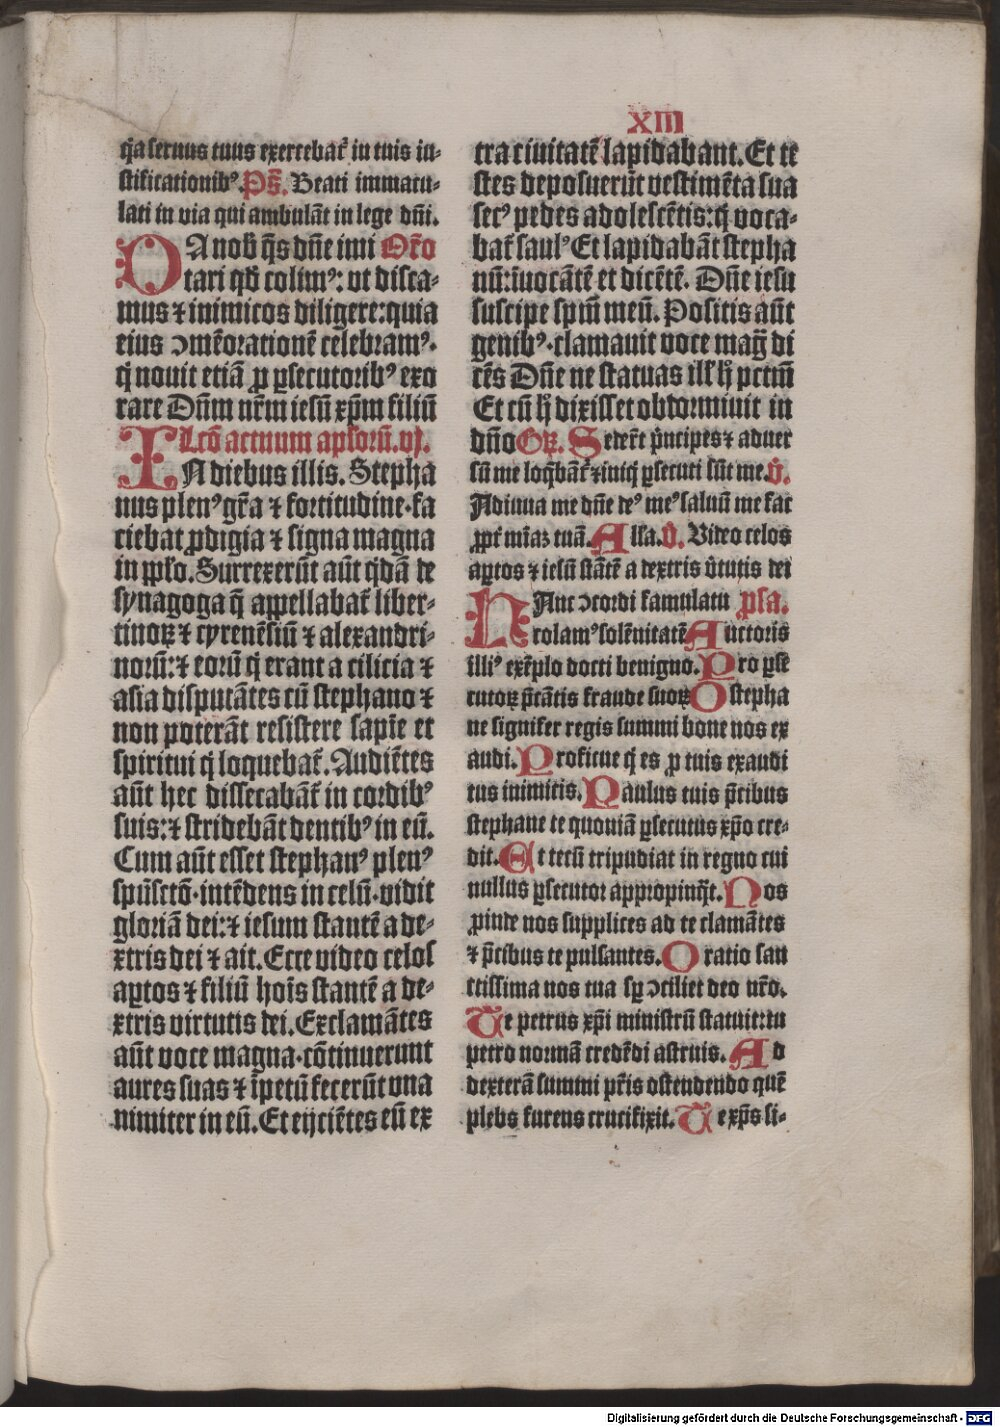 XIII
q̇a seruus tuus exercebat᷑ in tuis iu-
stificationib⁹. Ps̄. Beati immacu-
lati in via qui ambulāt in lege dn̄i.
DA nob̄ q̄s dn̄e imi Or̄o
tari qḋ colim⁹: vt disca-
mus ⁊ inimicos diligere: quia
eius ↄmēorationē celebram⁹.
q̇ nouit etiā ꝓ ꝑsecutorib⁹ exo
rare Dn̄m nr̄m iesū xp̄m filiū
Lcō actuum apl̓orū. vj.
IN diebus illis. Stepha
nus plen⁹ gr̄a ⁊ fortitudine. fa
ciebat ꝓdigia ⁊ signa magna
in pplo̓. Surrexerūt aūt q̇dā de
synagoga q̄ appellabat᷑ liber-
tinoꝝ ⁊ cyrenēsiū ⁊ alexandri-
norū: ⁊ eorū q̇ erant a cilicia ⁊
asia disputātes cū stephano ⁊
non poterāt resistere sapīe et
spiritui q̇ loquebat᷑. Audiētes
aūt hec dissecabāt᷑ in cordib⁹
suis: ⁊ stridebāt dentib⁹ in eū.
Cum aūt esset stephan⁹ plen⁹
spūsctō. intēdens in celū. vidit
gloriā dei: ⁊ iesum stantē a de-
xtris dei ⁊ ait. Ecce video celos
aꝑtos ⁊ filiū hoīs stantē a de-
xtris virtutis dei. Exclamātes
aūt voce magna. cōtinuerunt
aures suas ⁊ īpetū fecerūt vna
nimiter in eū. Et eijciētes eū ex
tra ciuitatē lapidabant. Et te
stes deposuerūt vestimēta sua
sec⁹ pedes adolescētis: q̇ voca-
bat᷑ saul⁹ Et lapidabāt stepha
nū: īuocātē et dicētē. Dn̄e iesu
suscipe sp̄m meū. Positis aūt
genib⁹. clamauit voce mag̅ di
cēs Dn̄e ne statuas ill̓ h̓ pctm̄
Et cū h̓ dixisset obdormiuit in
dn̄o Gꝝ. Seder̄t p̄ncipes ⁊ aduer
sū me loq̄bāt᷑ ⁊ iniq̇ ꝑsecuti sūt me. v̇.
Adiuua me dn̄e de⁹ me⁹ saluū me fac
ꝓpt̓ mīaꝫ tuā. All̓a. v̇. Video celos
aꝑtos ⁊ iesū stātē a dextris v̓tutis dei
HAnc ↄcordi famulatu psa.
colam⁹ solēnitatē Auctoris
illi⁹ exēplo docti benigno. Pro ꝑse
cutoꝝ p̄cātis fraude suoꝝ O stepha
ne signifer regis summi bone nos ex
audi. Proficue q̇ es ꝓ tuis exaudi
tus inimicis. Paulus tuis p̄cibus
stephane te quoniā ꝑsecutus xp̄o cre-
dit. Et tecū tripudiat in regno cui
nullus ꝑsecutor appropinq̄t. Nos
ꝓinde nos supplices ad te clamātes
⁊ p̄cibus te pulsantes. Oratio san
ctissima nos tua sꝑ ↄciliet deo nr̄o.
Te petrus xp̄i ministrū statuit: tu
petro normā credēdi astruis. Ad
dexterā summi pr̄is ostendendo quē
plebs furens crucifixit. Te xp̄s si-
Digitalisierung gefördert durch die Deutsche Forschungsgemeinschaft - DFG